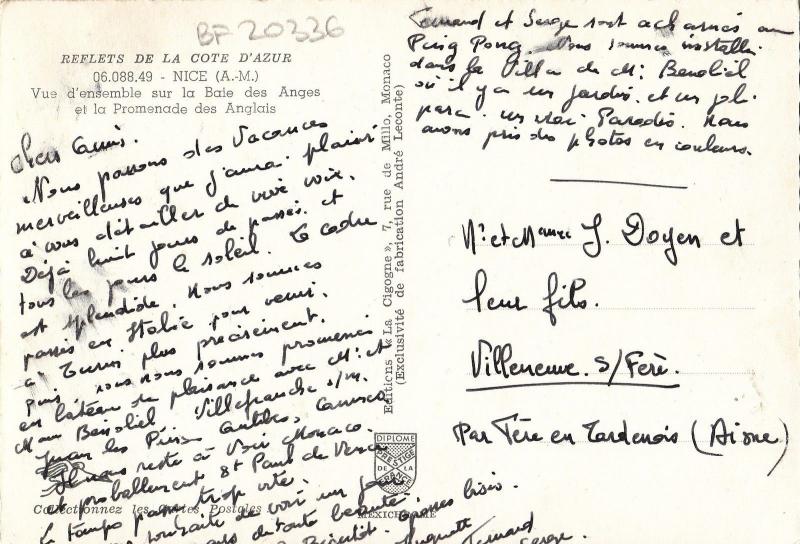 BF 20336
REFLETS DE LA COTE D'AZUR
06.088.49 - NICE (A.-M.)
Vue d'ensemble sur la Baie des Anges
et la Promenade des Anglais
Chers Amis.
Nous passons des Vacances
merveilleuses que j'aurai plaisir
à vous détailler de vive voix.
Déjà huit jours de passés. et
tous les jours le soleil. Le cadre
est splendide. Nous sommes
passés en Italie pour venir.
à Turin plus précisément.
Puis nous nous sommes promenés
en bâteau de plaisance avec Mr et
Mme Benoliel Villefranche s/m.
Juan les Pins Antibes,
Il nous reste à Voir Monaco.
et probablement St Paul de Vence
Le temps passe trop vite.
souhaite de voir un jour
de toute beauté
Bientôt. grosses bises.
Huguette Fernand
Serge.
Collectionnez les Cartes Postales
Editions « La Cigogne », 7, rue de Millo, Monaco
(Exclusivité de fabrication André Leconte)
DIPLOME
PRESTIGE
DE LA
FRANCE
MEXICHROME
Fernand et Serge sont acharnés au
Ping Pong. Nous sommes installés
dans la Villa de Mr Benoliel
où il y a un jardin. et un joli
parc. un vrai Paradis. Nous
avons pris des photos en couleurs.
Mr et Mme J. Doyen et
leur fils.
Villeneuve. s/Fère.
Par Fère en Tardenois (Aisne)